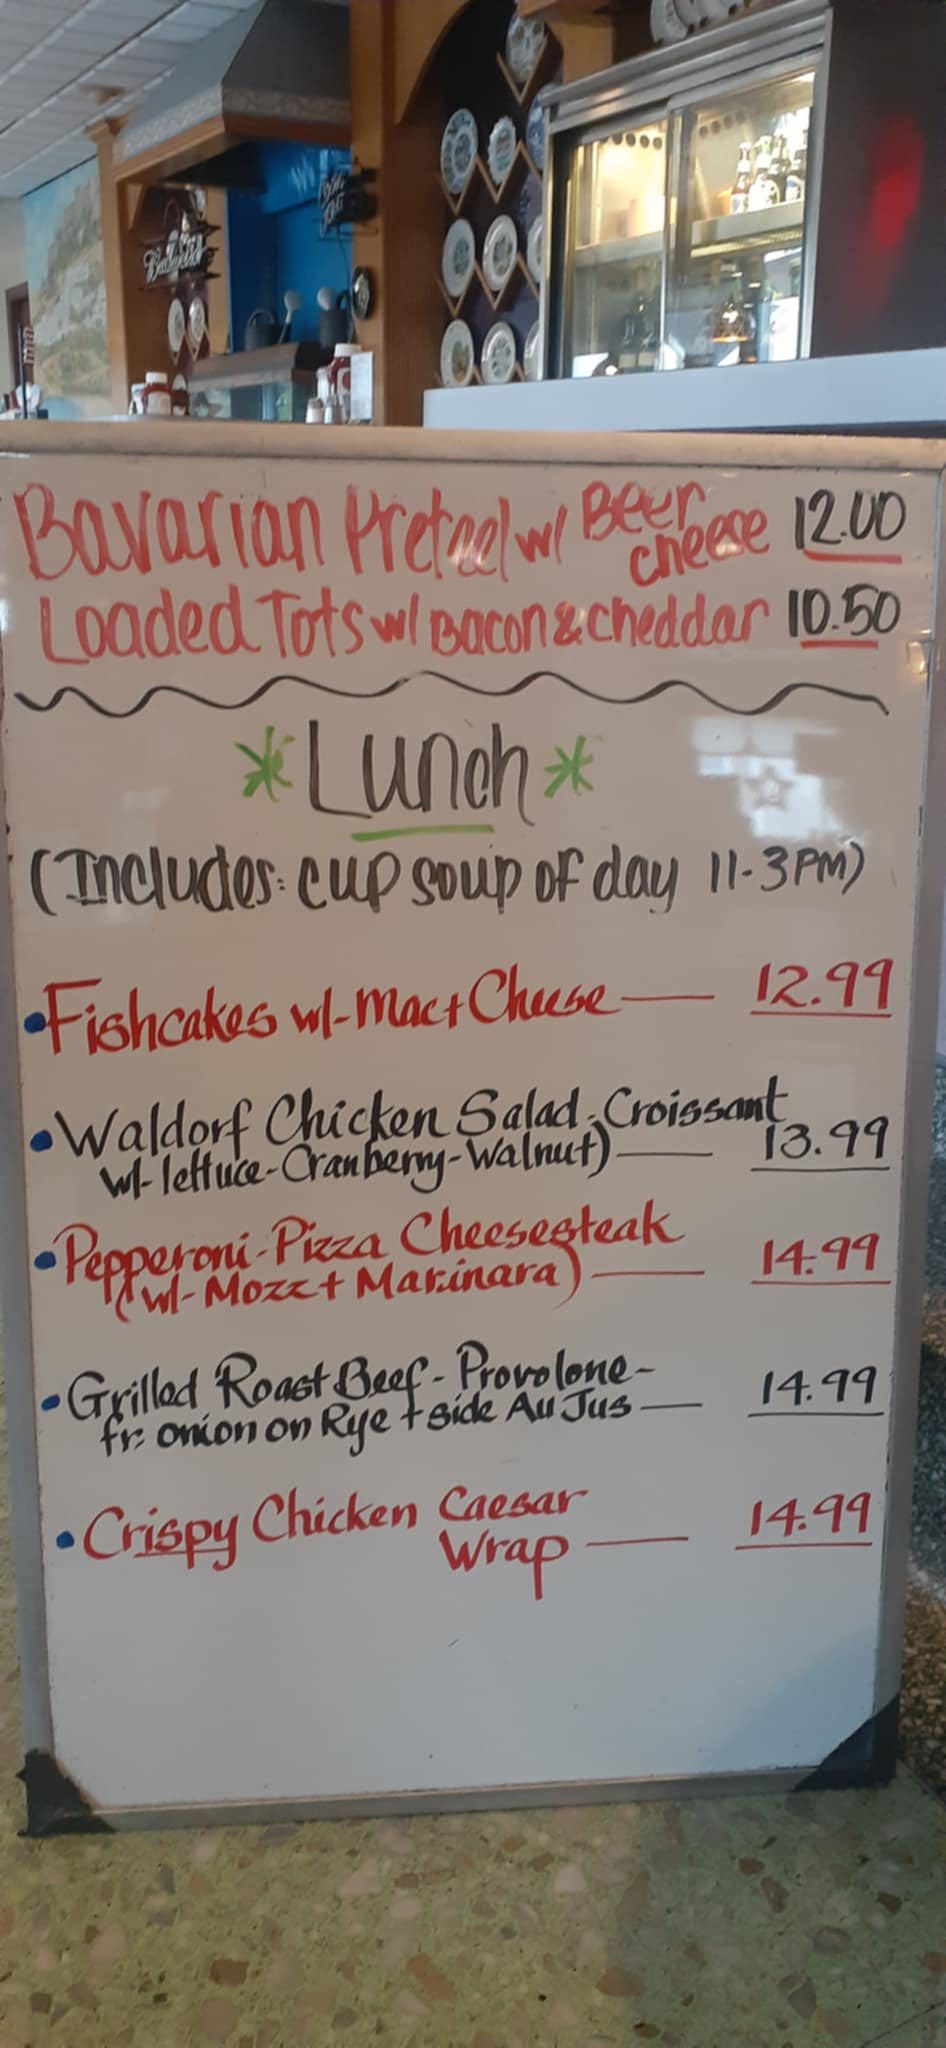 Bavarian Pretzel w/ Beer cheese 12.00
Loaded Tots w/ Bacon & cheddar 10.50
*Lunch*
(Includes: cup soup of day 11-3PM)
•Fishcakes w/- Mac + Cheese — 12.99
•Waldorf Chicken Salad - Croissant
w/- lettuce - Cranberry - Walnut) — 13.99
•Pepperoni - Pizza Cheesesteak
(w/- Mozz + Marinara) — 14.99
•Grilled Roast Beef - Provolone -
fr: onion on Rye + side Au Jus — 14.99
•Crispy Chicken Caesar
Wrap — 14.99